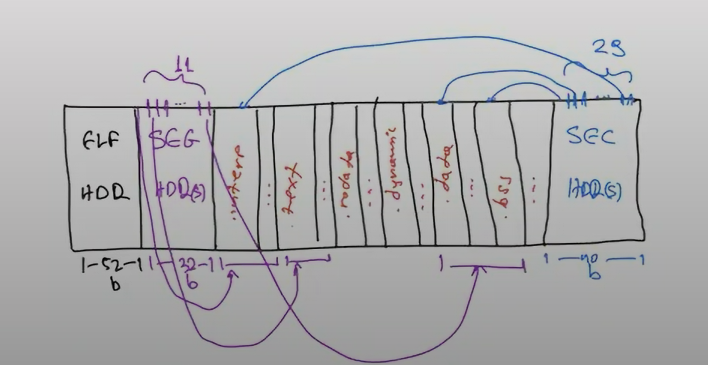 11
29
ELF
HDR
SEG
HDR(s)
.interp
...
.text
...
.rodata
...
.dynamic
...
.data
...
.bss
...
SEC
HDR(s)
52
b
32
b
40
b